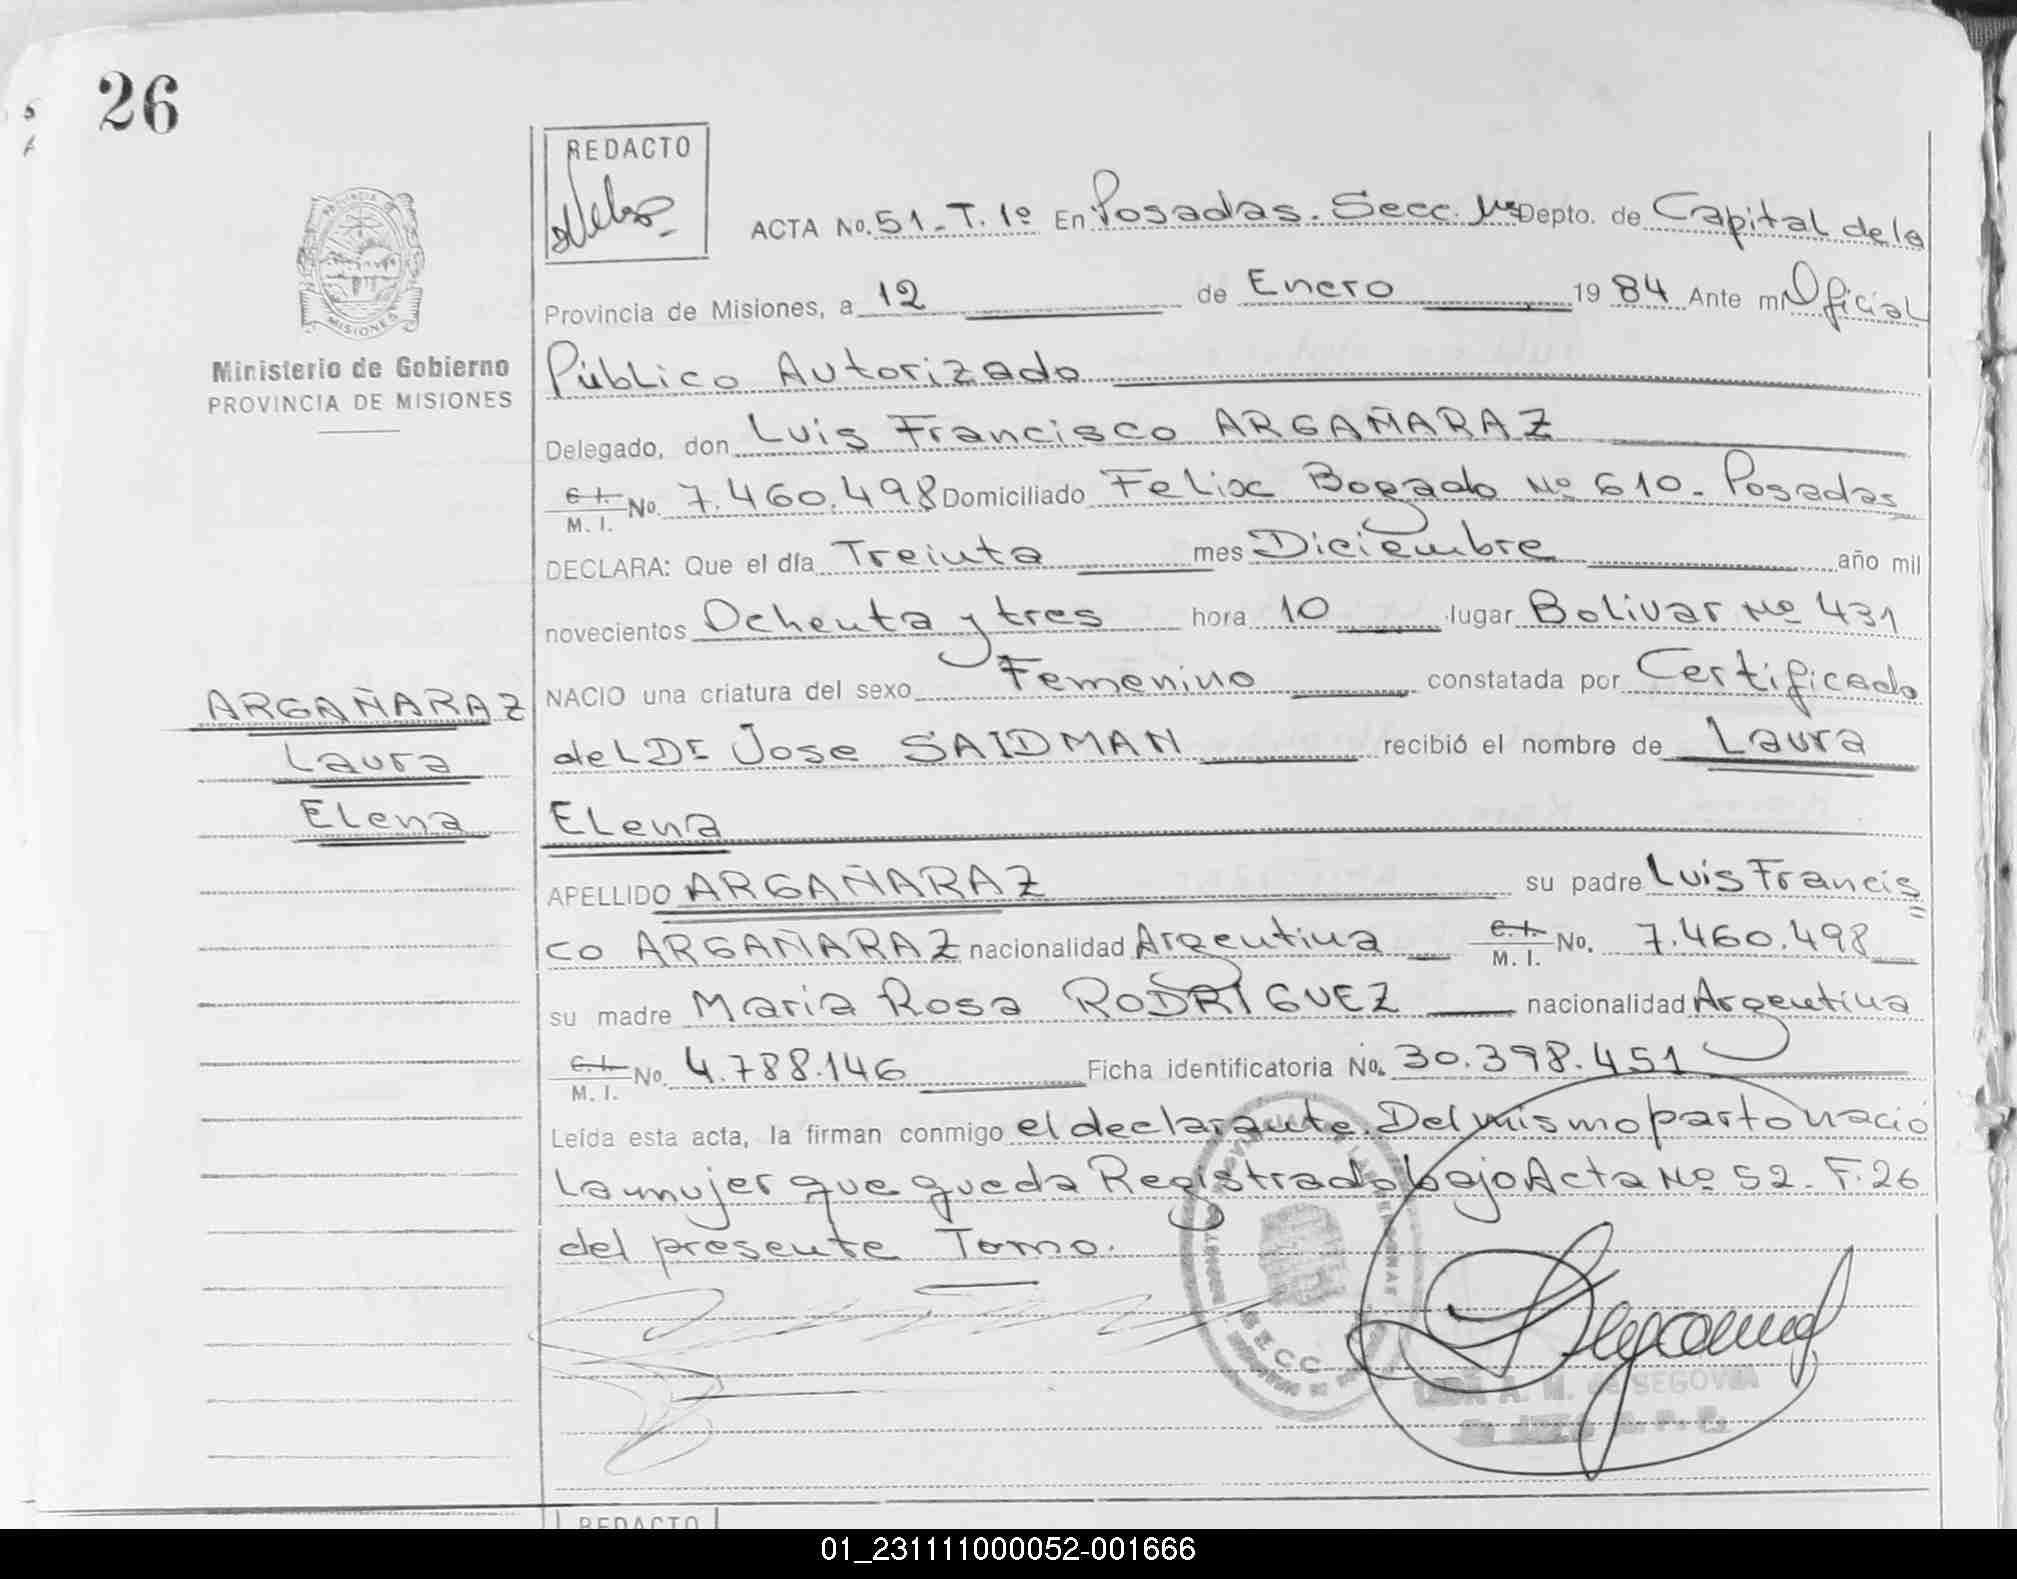 26
REDACTO
ACTA No. 51 - T. 1º En Posadas. Secc. 1ª Depto. de Capital de la
Provincia de Misiones, a 12 de Enero 19 84 Ante mi Oficial
Público Autorizado
Delegado, don Luis Francisco ARGAÑARAZ
C. I. M. I. No. 7.460.498 Domiciliado Felix Bogado Nº 610 - Posadas
DECLARA: Que el día Treinta mes Diciembre año mil
novecientos Ochenta y tres hora 10 lugar Bolivar Nº 431
NACIO una criatura del sexo Femenino constatada por Certificado
del Dr Jose SAIDMAN recibió el nombre de Laura
Elena
APELLIDO ARGAÑARAZ su padre Luis Francis
co ARGAÑARAZ nacionalidad Argentina C. I. M. I. No. 7.460.498
su madre Maria Rosa RODRIGUEZ nacionalidad Argentina
C. I. M. I. No. 4.788.146 Ficha identificatoria No. 30.398.451
Leída esta acta, la firman conmigo el declarante. Del mismo parto nació
la mujer que queda Registrado bajo Acta Nº 52 - F. 26
del presente Tomo.
PROVINCIA DE
MISIONES
Ministerio de Gobierno
PROVINCIA DE MISIONES
ARGAÑARAZ
Laura
Elena
SECC
A. M. de SEGOVIA
REDACTO
01_231111000052-001666